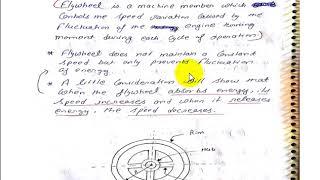 (Flywheel is a machine member which
Controls the speed variation caused by the
Fluctuation of the engine turning
moment during each cycle of operation)
* Flywheel does not maintain a constant
speed but only prevents fluctuation
of energy.
* A little Consideration will show that
when the flywheel absorbs energy, its
speed increases and when it releases
energy, the speed decreases.
Rim
Hub